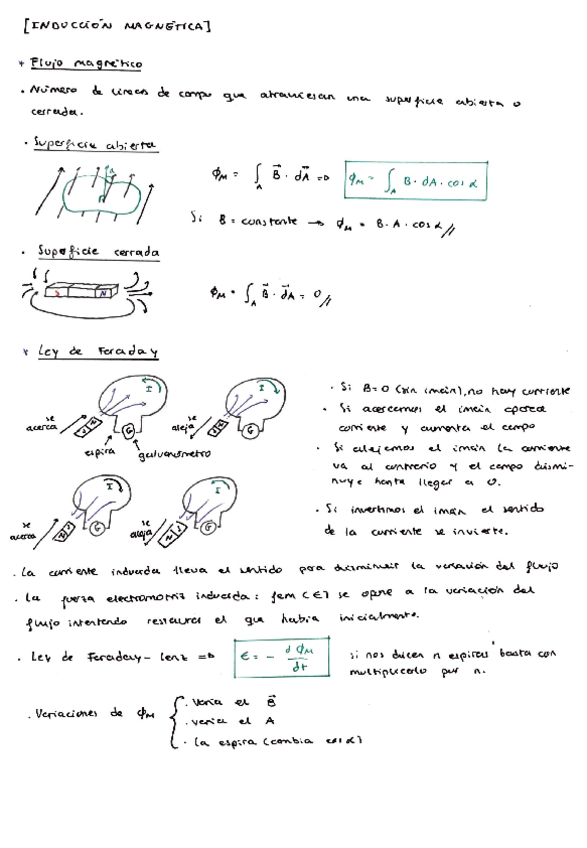 [INDUCCIÓN MAGNÉTICA]
* Flujo magnético
· Número de líneas de campo que atraviesan una superficie abierta o
cerrada.
· Superficie abierta
ϕM = ∫A B⃗ · dA⃗ =D ϕM = ∫A B · dA · cos α
α
Si B = constante → ϕM = B · A · cos α //
· Superficie cerrada
S N
ϕM = ∫A B⃗ · dA⃗ = 0 //
* Ley de Faraday
I I
se acerca
se aleja
G G
espira galvanómetro
· Si B=0 (sin imán), no hay corriente
· Si acercamos el imán aparece
corriente y aumenta el campo
· Si alejamos el imán la corriente
va al contrario y el campo dismi-
nuye hasta llegar a 0.
I I
se acerca
se aleja
G G
· Si invertimos el imán el sentido
de la corriente se invierte.
· La corriente inducida lleva el sentido para disminuir la variación del flujo
· La fuerza electromotriz inducida: fem (ε) se opone a la variación del
flujo intentando restaurar el que había inicialmente.
· Ley de Faraday-Lenz =D ε = - dϕM/dt si nos dicen n espiras basta con
multiplicarlo por n.
· Variaciones de ϕM { · Varía el B⃗
· varía el A
· la espira (cambia cos α)